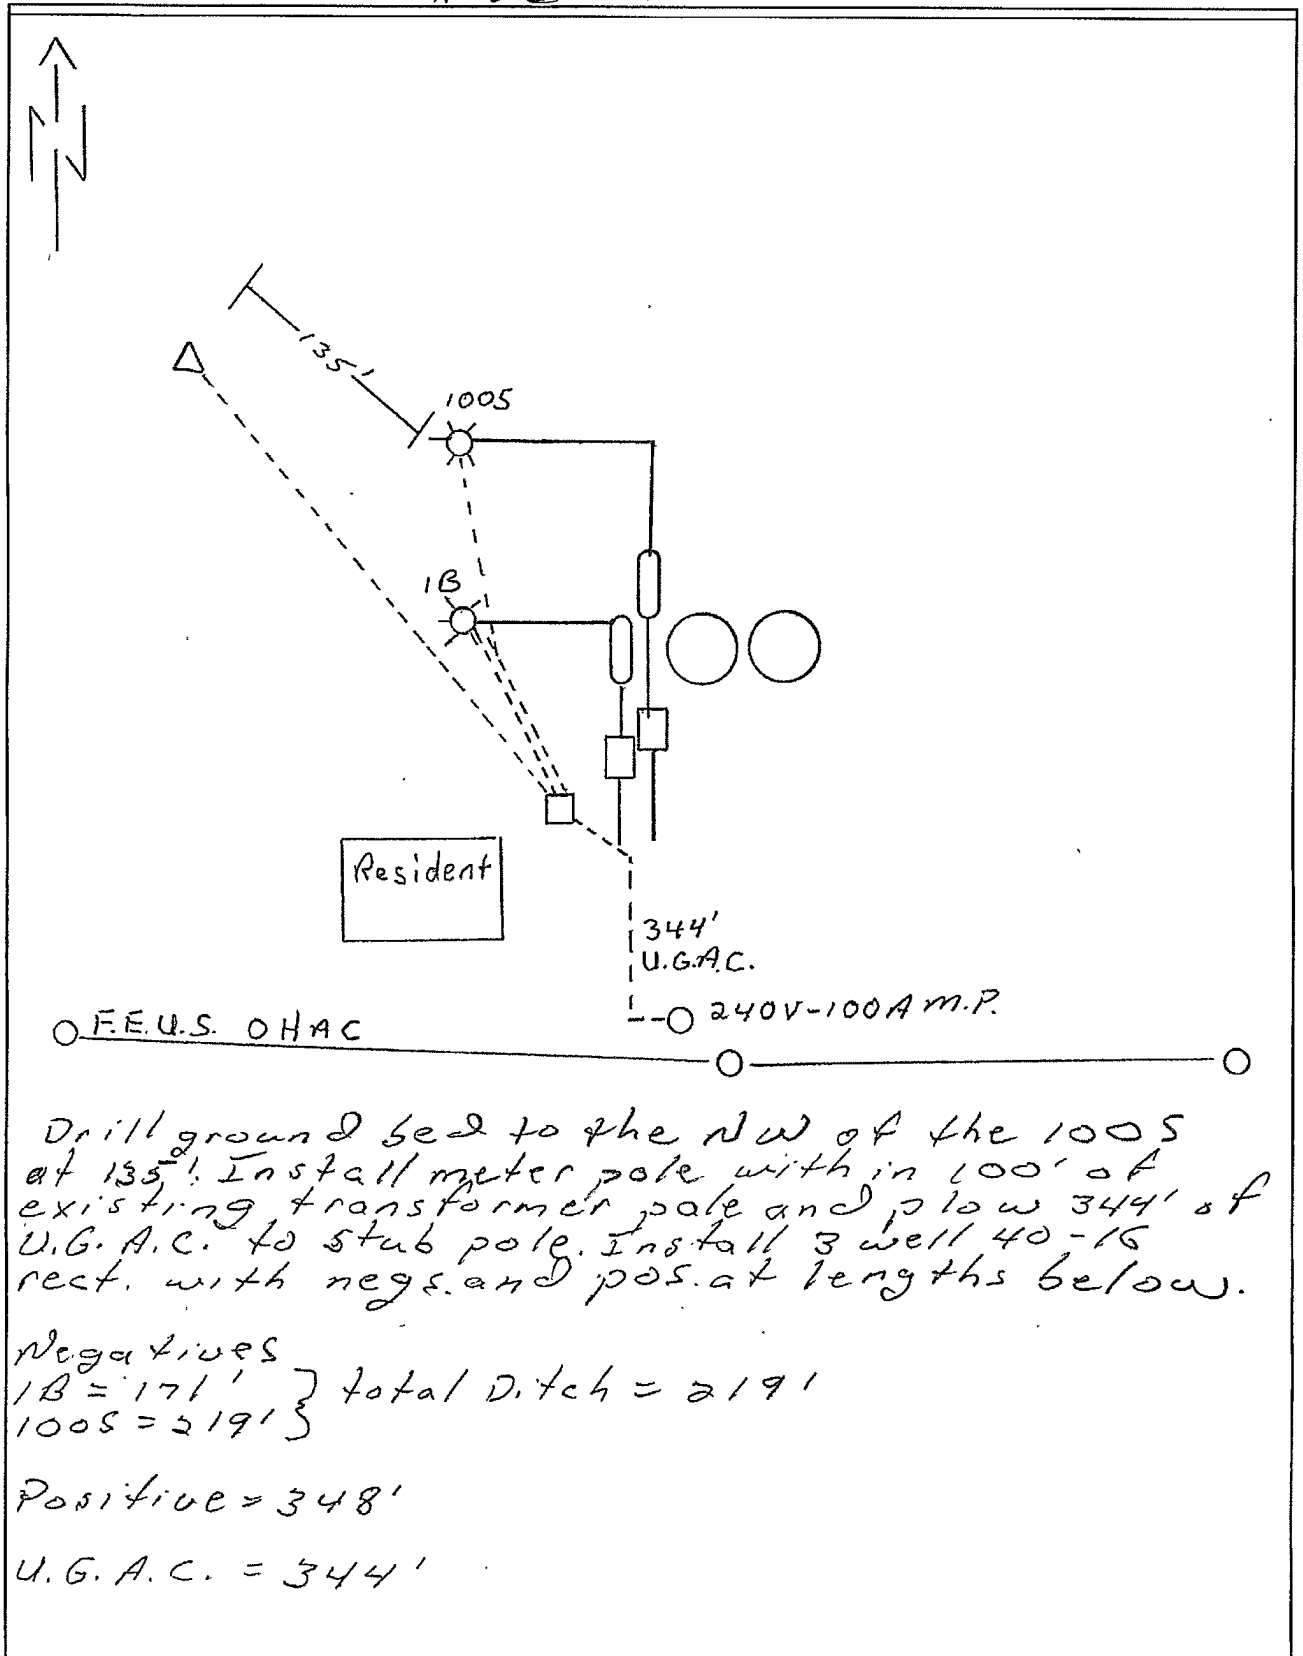 N
135'
100S
1B
Resident
344'
U.G.A.C.
240V-100A M.P.
F.E.U.S. OHAC
Drill ground bed to the NW of the 100S
at 135'. Install meter pole with in 100' of
existing transformer pole and plow 344' of
U.G.A.C. to stub pole. Install 3 well 40-16
rect. with negs. and pos. at lengths below.
Negatives
1B = 171' } total Ditch = 219'
100S = 219' }
Positive = 348'
U.G.A.C. = 344'